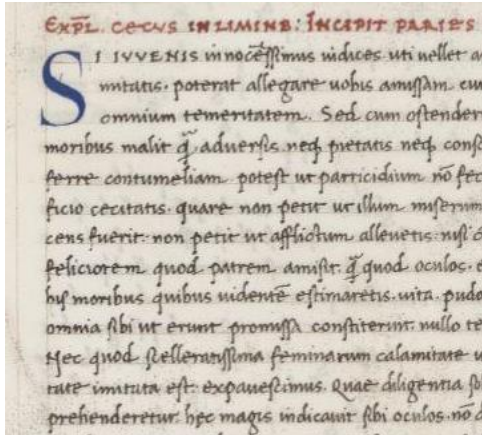 EXPL. CECVS IN LIMINE: INCIPIT PARIES
SI IVVENIS innocē̄ſſimus iudices uti uellet
nitatis. poterat allegare uobis amiſſam
omnium temeritatem. Sed cum oſtender
moribus malit q̄ adverſis. neq; pietatis neq;
ferre contumeliam poteſt ut parricidium nō fec
ficio cecitatis. quare non petit ut illum miſerum
cens fuerit: non petit ut afflictum allevetis: niſi
feliciorem quod patrem amiſit. q̄ quod oculos.
hiſ moribus quibus uidentē eſtimaretis. uita. pudo
omnia ſibi ut erunt promiſſa conſtiterint. nullo te
Nec quod ſcelleratiſſima feminarum calamitate
tate imitata eſt: expaveſcimus. Quae diligentia
prehenderetur. hęc magis indicauit ſibi oculos. nō